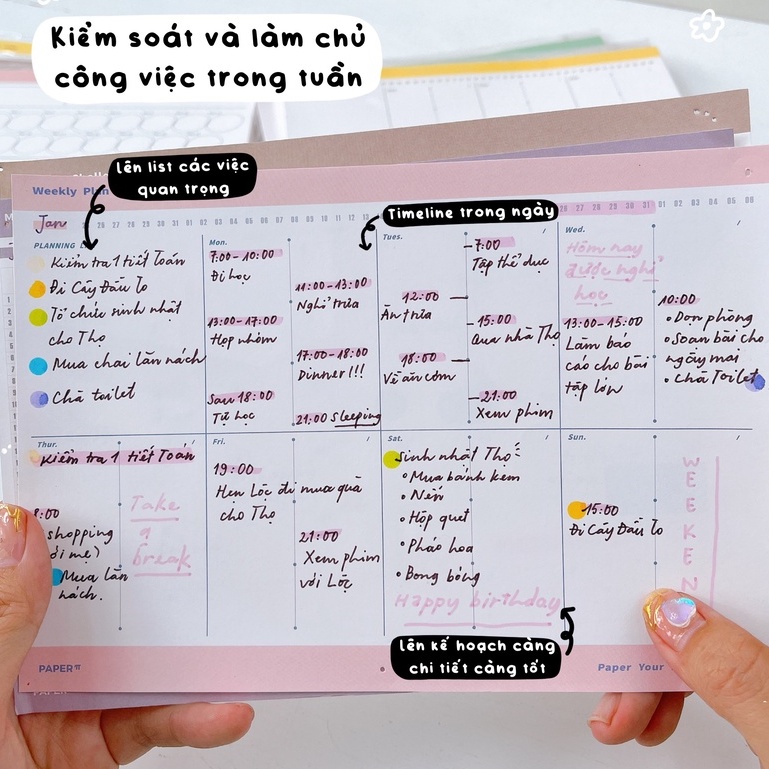 Kiểm soát và làm chủ
công việc trong tuần
lên list các việc
quan trọng
Timeline trong ngày
Weekly Plan
Jan
26 27 28 29 30 31 01 02 03 04 05 06 07 08 09 10 11 12 13
26 27 28 29 30 31 01 02 03 04 05 06
PLANNING
Kiểm tra 1 tiết Toán
Đi Cây Đầu To
Tổ chức sinh nhật
cho Thọ
Mua chai lăn nách
Chà toilet
Mon.
7:00 - 10:00
Đi học
11:00 - 13:00
Nghỉ trưa
13:00 - 17:00
Họp nhóm
17:00 - 18:00
Dinner!!!
Sau 18:00
Tự học
21:00 Sleeping
Tues.
7:00
Tập thể dục
12:00
Ăn trưa
15:00
Qua nhà Thọ
18:00
Về ăn cơm
21:00
Xem phim
Wed.
Hôm nay
được nghỉ
học
13:00 - 15:00
Làm báo
cáo cho bài
tập lớn
10:00
• Dọn phòng
• Soạn bài cho
ngày mai
• Chà Toilet
Thur.
Kiểm tra 1 tiết Toán
8:00
shopping
mẹ)
Mua lăn
nách.
Take
a
break
Fri.
19:00
Hẹn Lộc đi mua quà
cho Thọ
21:00
Xem phim
với Lộc
Sat.
Sinh nhật Thọ:
• Mua bánh kem
• Nến
• Hộp quẹt
• Pháo hoa
• Bong bóng
Happy birthday
Sun.
15:00
Đi Cây Đầu To
WEEKEN
lên kế hoạch càng
chi tiết càng tốt
PAPERπ
Paper Your
PAPERπ